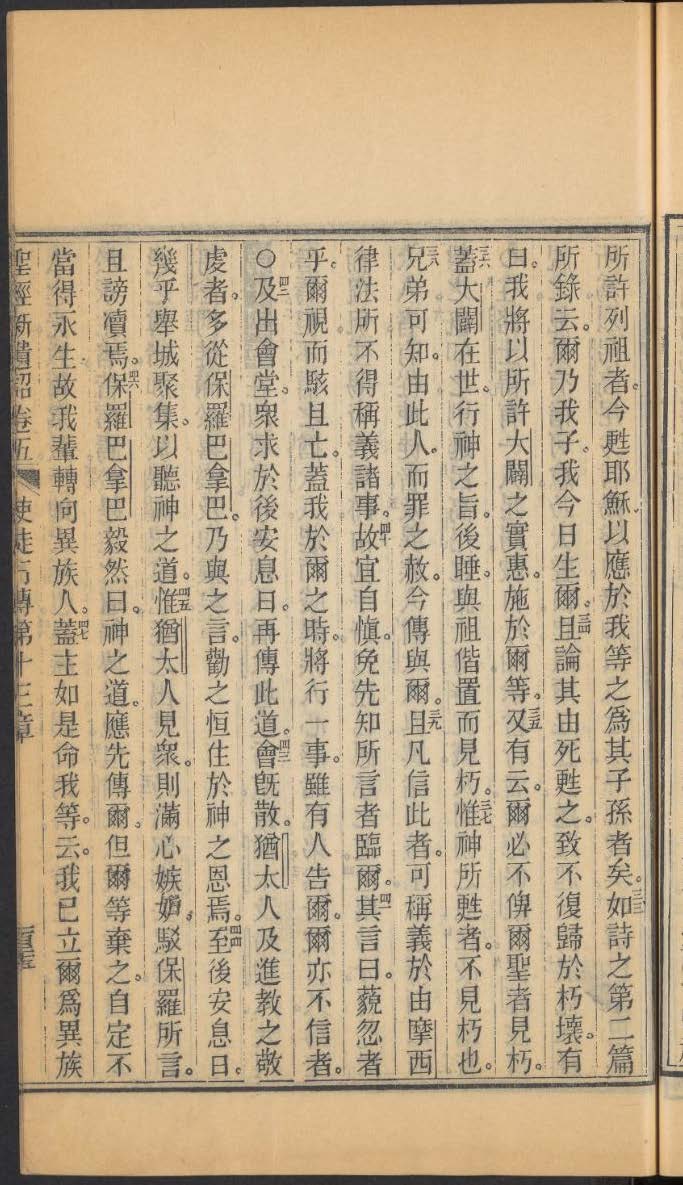 所許列祖者。今甦耶穌、以應於我等之爲其子孫者矣。三三如詩之第二篇
所錄云。爾乃我子。我今日生爾。三四且論其由死甦之。致不復歸於朽壞。有
曰。我將以所許大闢之實惠。施於爾等。三五又有云。爾必不俾爾聖者見朽。
三六蓋大闢在世。行神之旨。後睡。與祖偕置而見朽。三七惟神所甦者。不見朽也。
三八兄弟可知。由此人。而罪之赦。今傳與爾。三九且凡信此者。可稱義於由摩西
律法所不得稱義諸事。四十故宜自愼。免先知所言者臨爾。四一其言曰。藐忽者
乎。爾視而駭且亡。蓋我於爾之時。將行一事。雖有人告爾。爾亦不信者。
○四二及出會堂。衆求於後安息日。再傳此道。四三會旣散。猶太人及進教之敬
虔者。多從保羅巴拿巴。乃與之言。勸之恒住於神之恩焉。四四至後安息日。
幾乎舉城聚集。以聽神之道。四五惟猶太人見衆。則滿心嫉妒。駁保羅所言。
且謗凟焉。四六保羅巴拿巴毅然曰。神之道。應先傳爾。但爾等棄之。自定不
當得永生。故我輩轉向異族人。四七蓋主如是命我等。云。我已立爾爲異族
聖經新遺詔卷五 使徒行傳第十三章